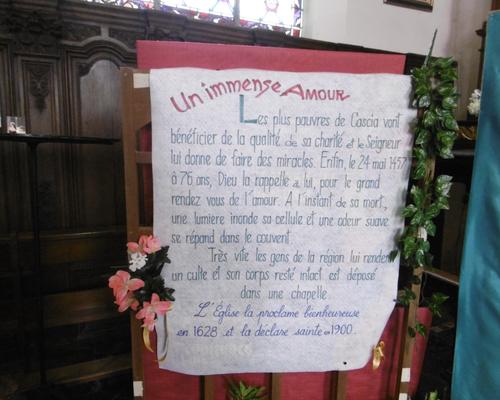 Un immense Amour
Les plus pauvres de Cascia vont
bénéficier de la qualité de sa charité et le Seigneur
lui donne de faire des miracles. Enfin, le 24 mai 1457
à 76 ans, Dieu la rappelle à lui, pour le grand
rendez vous de l'amour. A l'instant de sa mort,
une lumière inonde sa cellule et une odeur suave
se répand dans le couvent.
Très vite les gens de la région lui rendent
un culte et son corps resté intact est déposé
dans une chapelle.
L'Église la proclame bienheureuse
en 1628 et la déclare sainte en 1900.